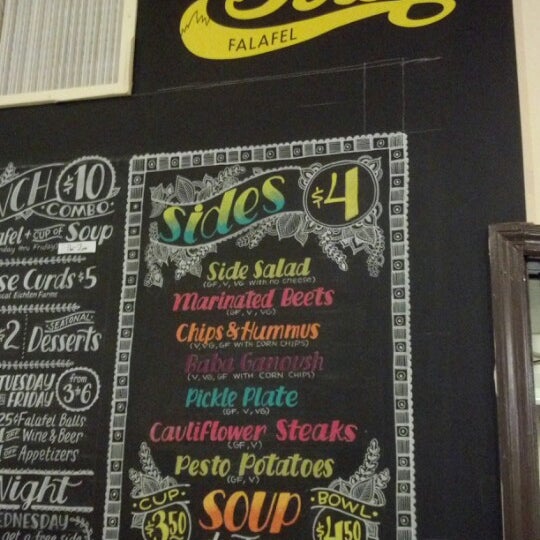 FALAFEL
$10
COMBO
CUP OF Soup
Curds $5
SEASONAL
Desserts
TUESDAY
FRIDAY
from
3-6
25¢ Falafel Balls
Wine & Beer
Appetizers
Night
get a free side
Sides $4
Side Salad
(GF, V, VG WITH NO CHEESE)
Marinated Beets
(GF, V, VG)
Chips & Hummus
(V, VG, GF WITH CORN CHIPS)
Baba Ganoush
(V, VG, GF WITH CORN CHIPS)
Pickle Plate
(GF, V, VG)
Cauliflower Steaks
(GF, V)
Pesto Potatoes
(GF, V)
CUP
$3.50
SOUP
BOWL
$4.50